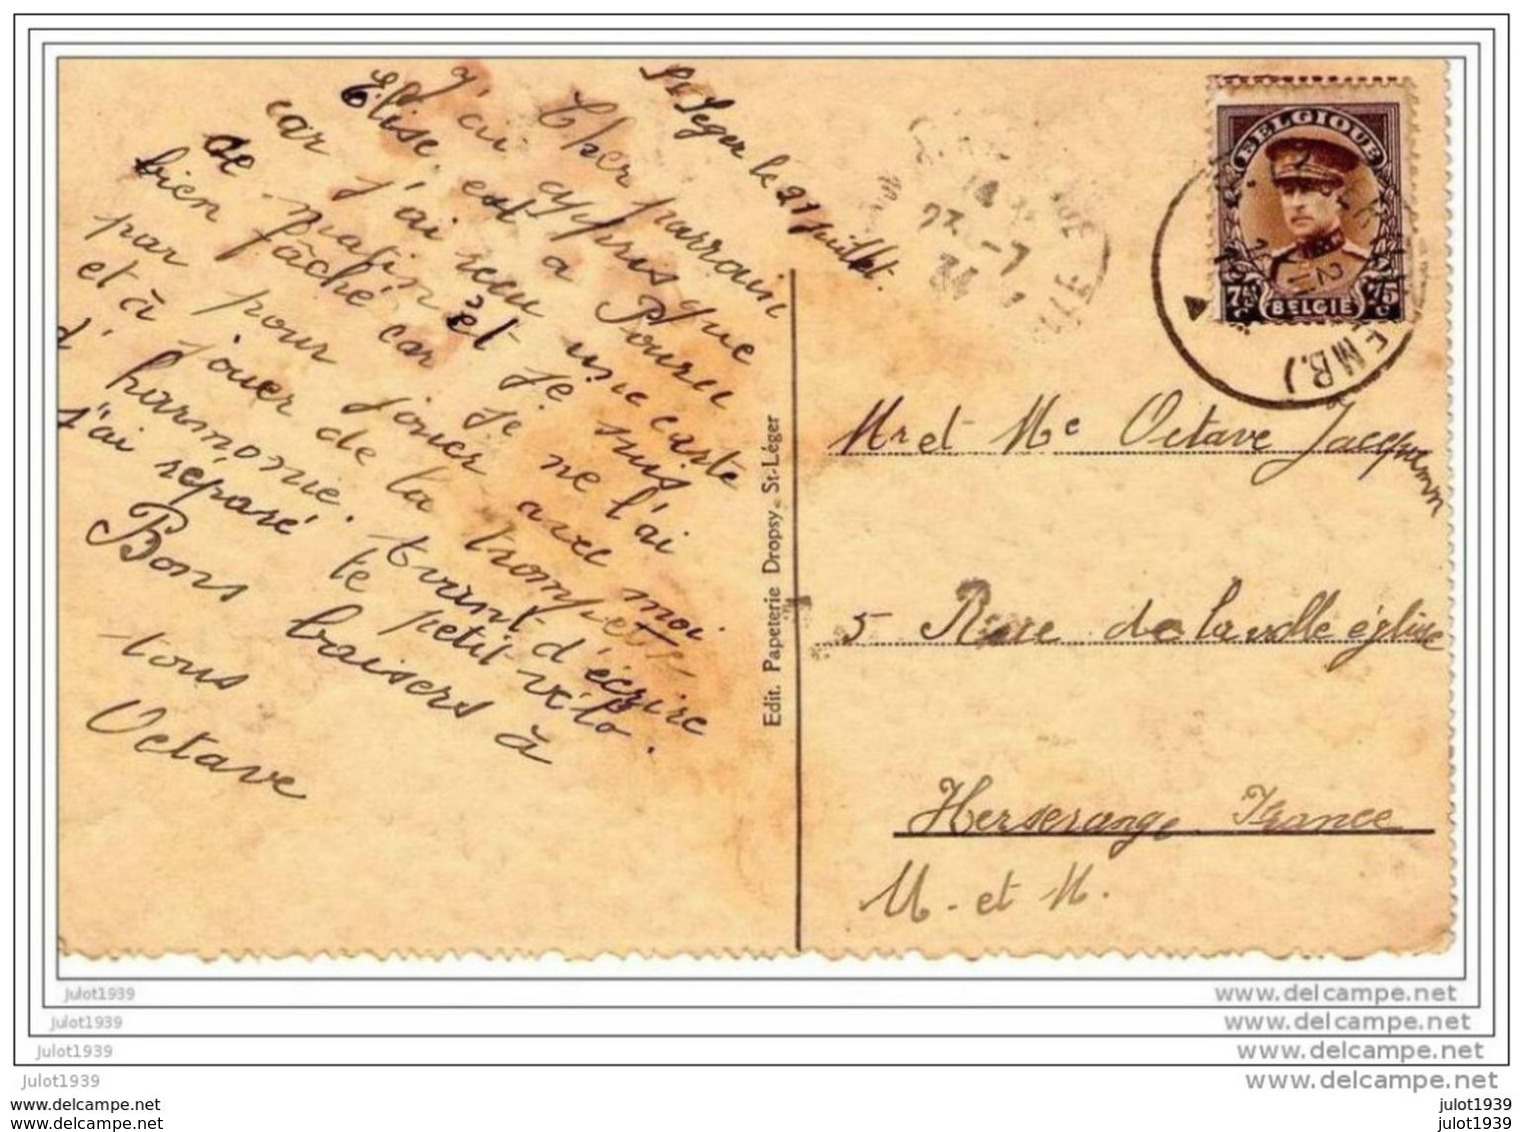 St Léger le 21 juillet.
Cher parrain
J'ai appris que
Élise, est a Pouru
car j'ai reçu une carte
ce matin et je suis
bien fâché car je ne l'ai
par pour jouer avec moi.
et à jouer de la trompette,
d'harmonie. Avant d'écrire
j'ai réparé le petit vélo.
Bons baisers à
tous
Octave
Edit. Papeterie Dropsy. St-Léger
BELGIQUE
75 c 75 c
BELGIE
EMB.)
Mr et Me Octave Jacquemin
5 Rue de la vallé église
Herserange France
M. et M.
julot1939
www.delcampe.net
julot1939
www.delcampe.net
julot1939
www.delcampe.net
julot1939
www.delcampe.net
julot1939
julot1939
julot1939
julot1939